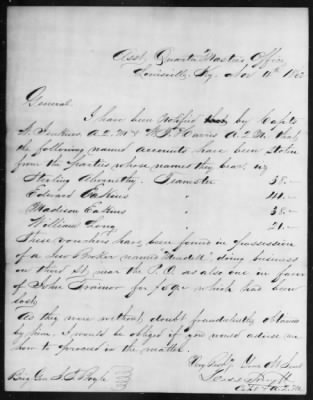 Asst. Quarter Masters Office
Louisville, Ky. Nov 11th 186
General.
I have been notified by Capts
W. Jenkins A.Q.M & Harris A.Q.M. that
the following named accounts have been stolen
from the parties whose names they bear, viz
Sterling Abernathy. Teamster 38.-
Edward Eakins " 41.-
Madison Eakins " 38.-
William Long " 21.-
These vouchers have been found in possession
of a Broker named doing business
on third St, near the P.O. as also one in favor
of John Trainor for which had been
lost.
As they were without doubt fraudulently obtained
by him, I would be obliged if you would advise me
how to proceed in the matter.
Very Respy. Your Obt Servt
Capt & A.Q.M.
Brig Gen J. T. Boyle